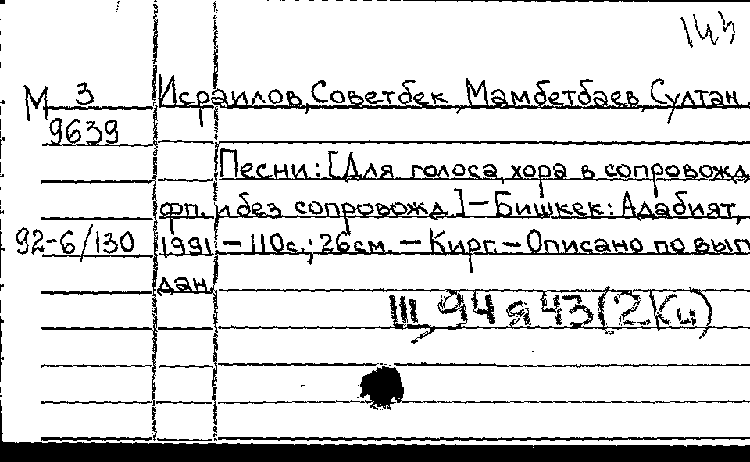 143
М 3 Исраилов, Советбек, Мамбетбаев, Султан
9639
Песни: [Для голоса, хора в сопровожд
фп. и без сопровожд.] – Бишкек: Адабият,
92-6/130 1991 – 110с.; 26см. – Кирг. – Описано по вып
дан.
Щ 94 я 43 (2Ки)